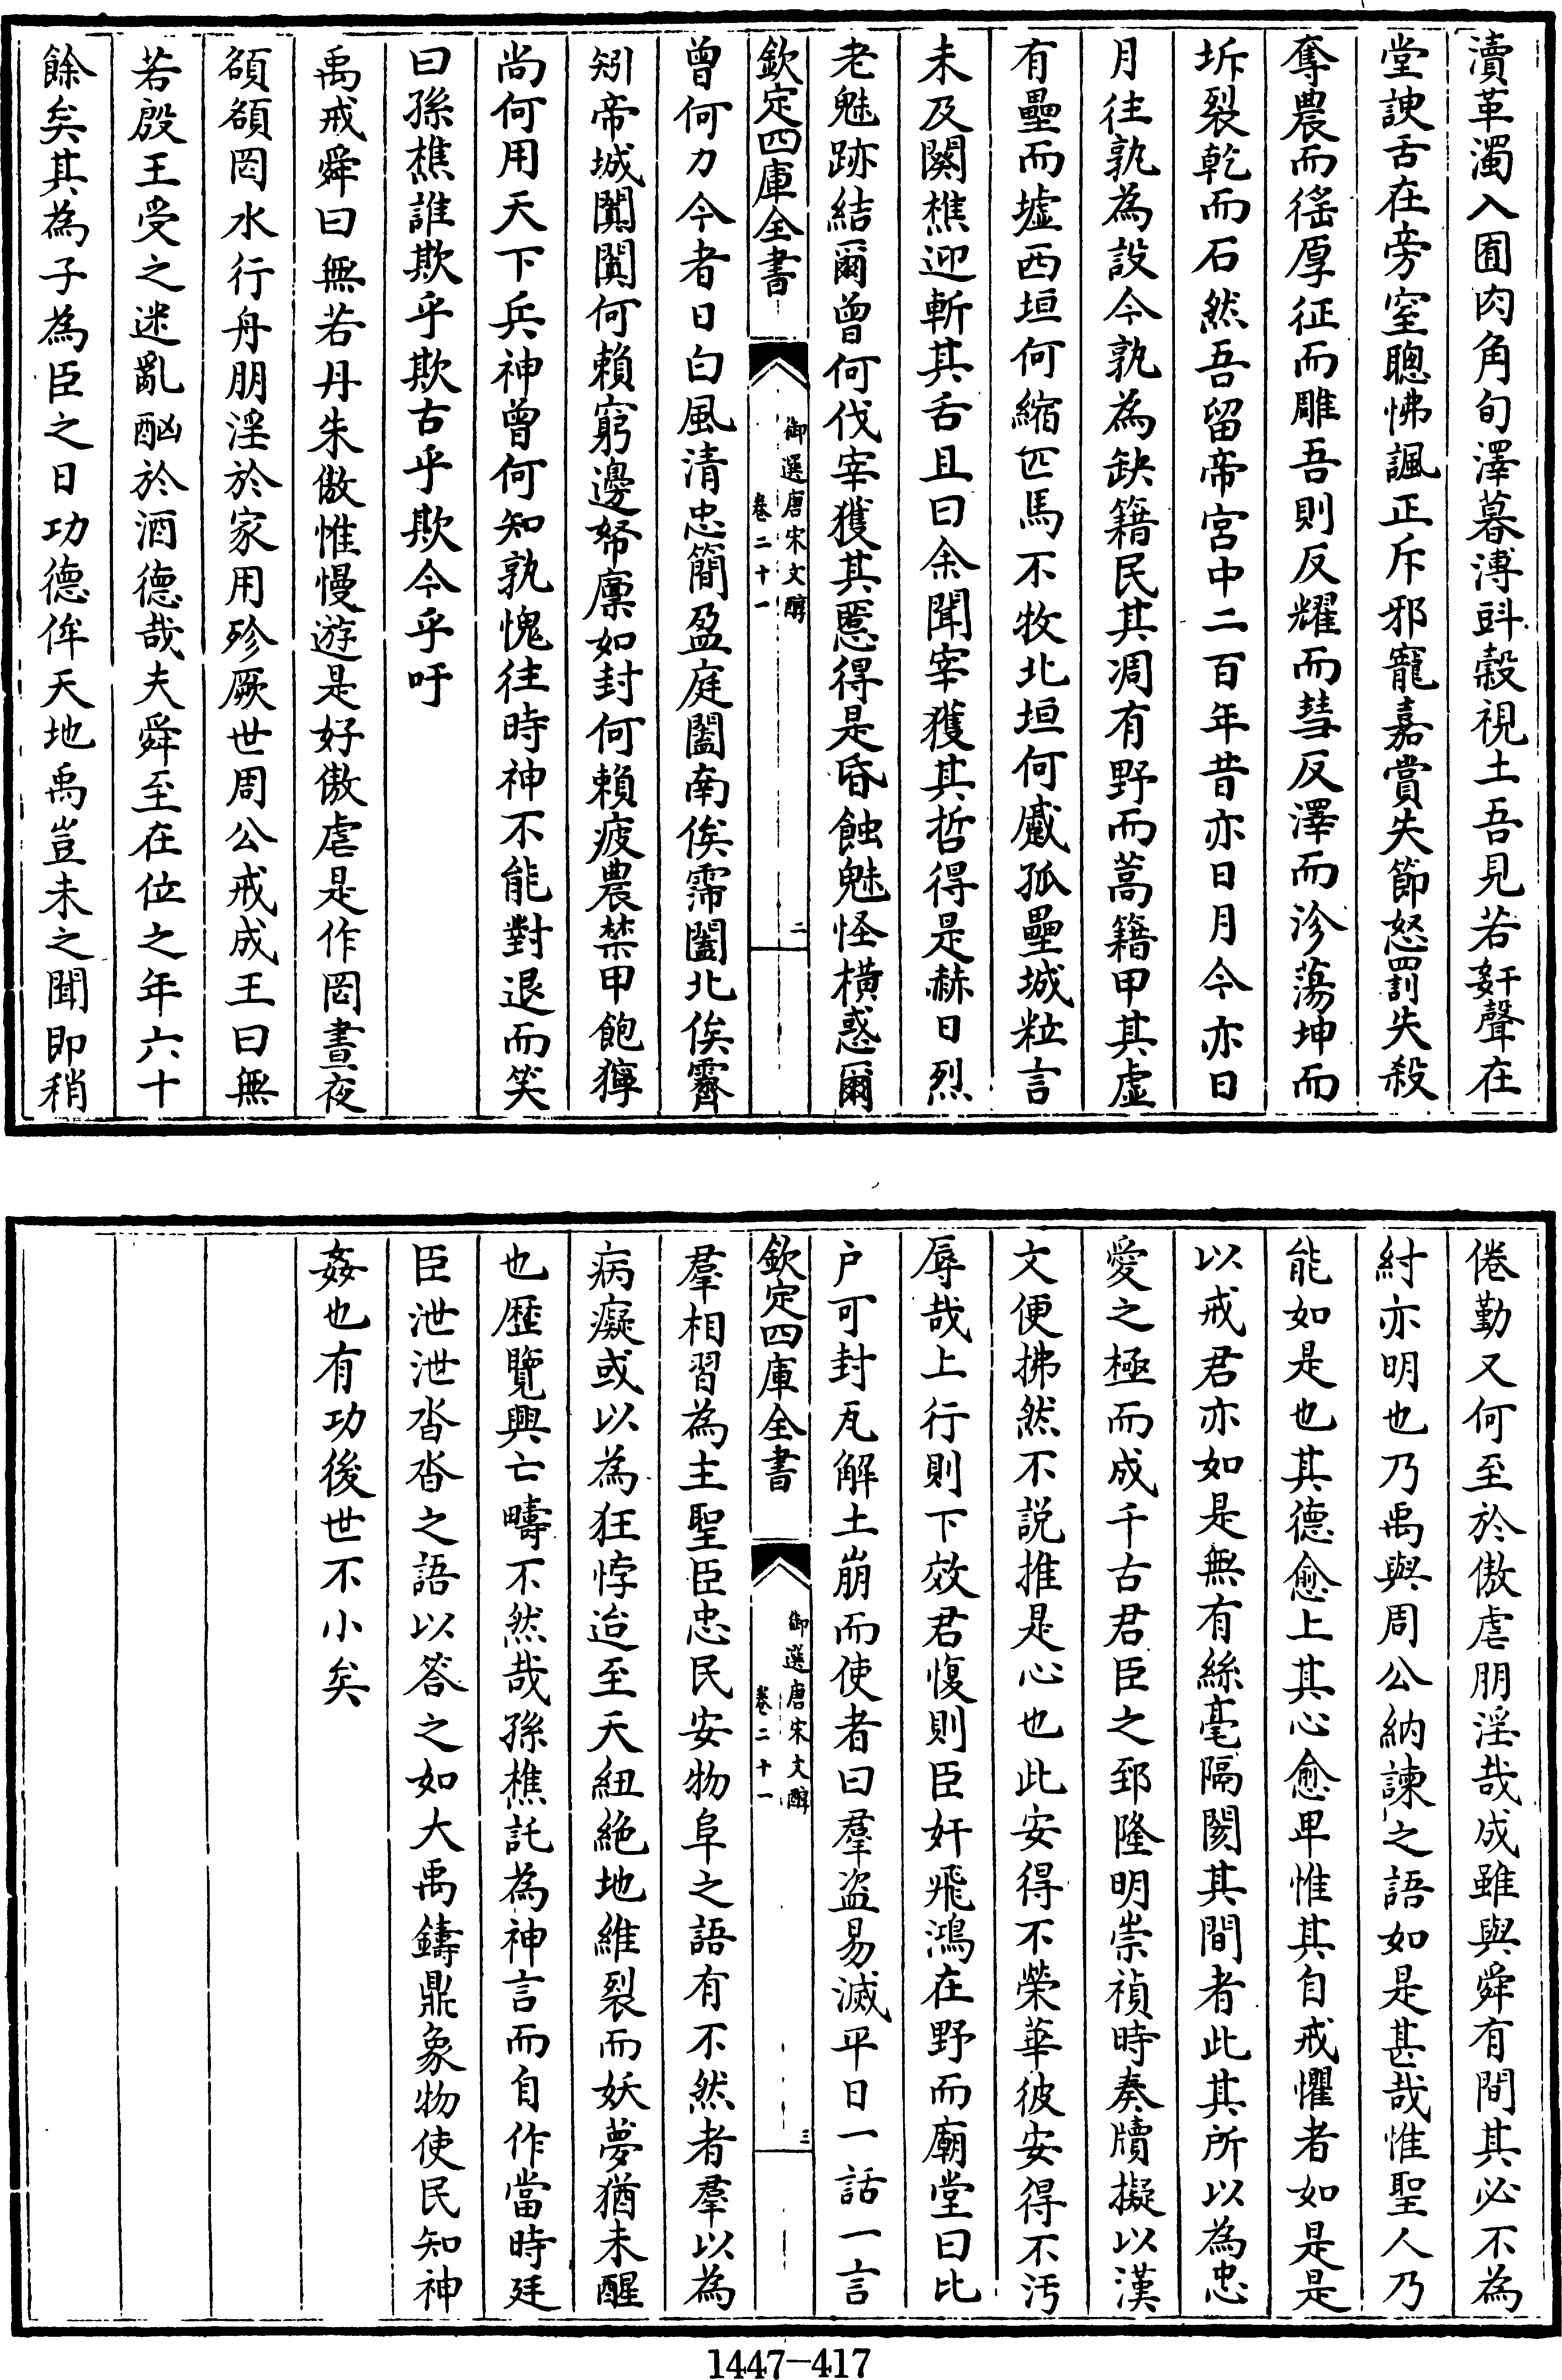 瀆革濁入囿肉角旬澤暮溥㪷穀視土吾見若姧聲在
堂諛舌在旁窒聰怫諷正斥邪寵嘉賞失節怒罰失殺
奪農而徭厚征而雕吾則反耀而彗反澤而沴蕩坤而
坼裂乾而石然吾留帝宮中二百年昔亦日月今亦日
月往孰為設今孰為缺籍民其凋有野而蒿籍甲其虛
有壘而墟西垣何縮匹馬不牧北垣何感孤壘城粒言
未及闋樵迎斬其舌且曰余聞宰獲其哲得是赫日烈
老魅跡結爾曾何伐宰獲其慝得是昏蝕魅怪橫惑爾
欽定四庫全書
御選唐宋文醇
卷二十一
二
曾何力今者日白風清忠簡盈庭闔南俟霈闔北俟霽
矧帝城闐闐何賴窮邊帑廩如封何賴疲農禁甲飽獰
尚何用天下兵神曾何知孰愧往時神不能對退而笑
曰孫樵誰欺乎欺古乎欺今乎吁
禹戒舜曰無若丹朱傲惟慢遊是好傲虐是作罔晝夜
頟頟罔水行舟朋淫於家用殄厥世周公戒成王曰無
若殷王受之迷亂酗於酒德哉夫舜至在位之年六十
餘矣其為子為臣之日功德侔天地禹豈未之聞即稍
倦勤又何至於傲虐朋淫哉成雖與舜有間其必不為
紂亦明也乃禹與周公納諫之語如是甚哉惟聖人乃
能如是也其德愈上其心愈卑惟其自戒懼者如是是
以戒君亦如是無有絲毫隔閡其間者此其所以為忠
愛之極而成千古君臣之郅隆明崇禎時奏牘擬以漢
文便拂然不説推是心也此安得不榮華彼安得不汚
辱哉上行則下效君愎則臣奸飛鴻在野而廟堂曰比
户可封瓦解土崩而使者曰羣盗易滅平日一話一言
欽定四庫全書
御選唐宋文醇
卷二十一
三
羣相習為主聖臣忠民安物阜之語有不然者羣以為
病癡或以為狂悖迨至天紐絶地維裂而妖夢猶未醒
也歴覽興亡疇不然哉孫樵託為神言而自作當時廷
臣泄泄沓沓之語以答之如大禹鑄鼎象物使民知神
姦也有功後世不小矣
1447—417